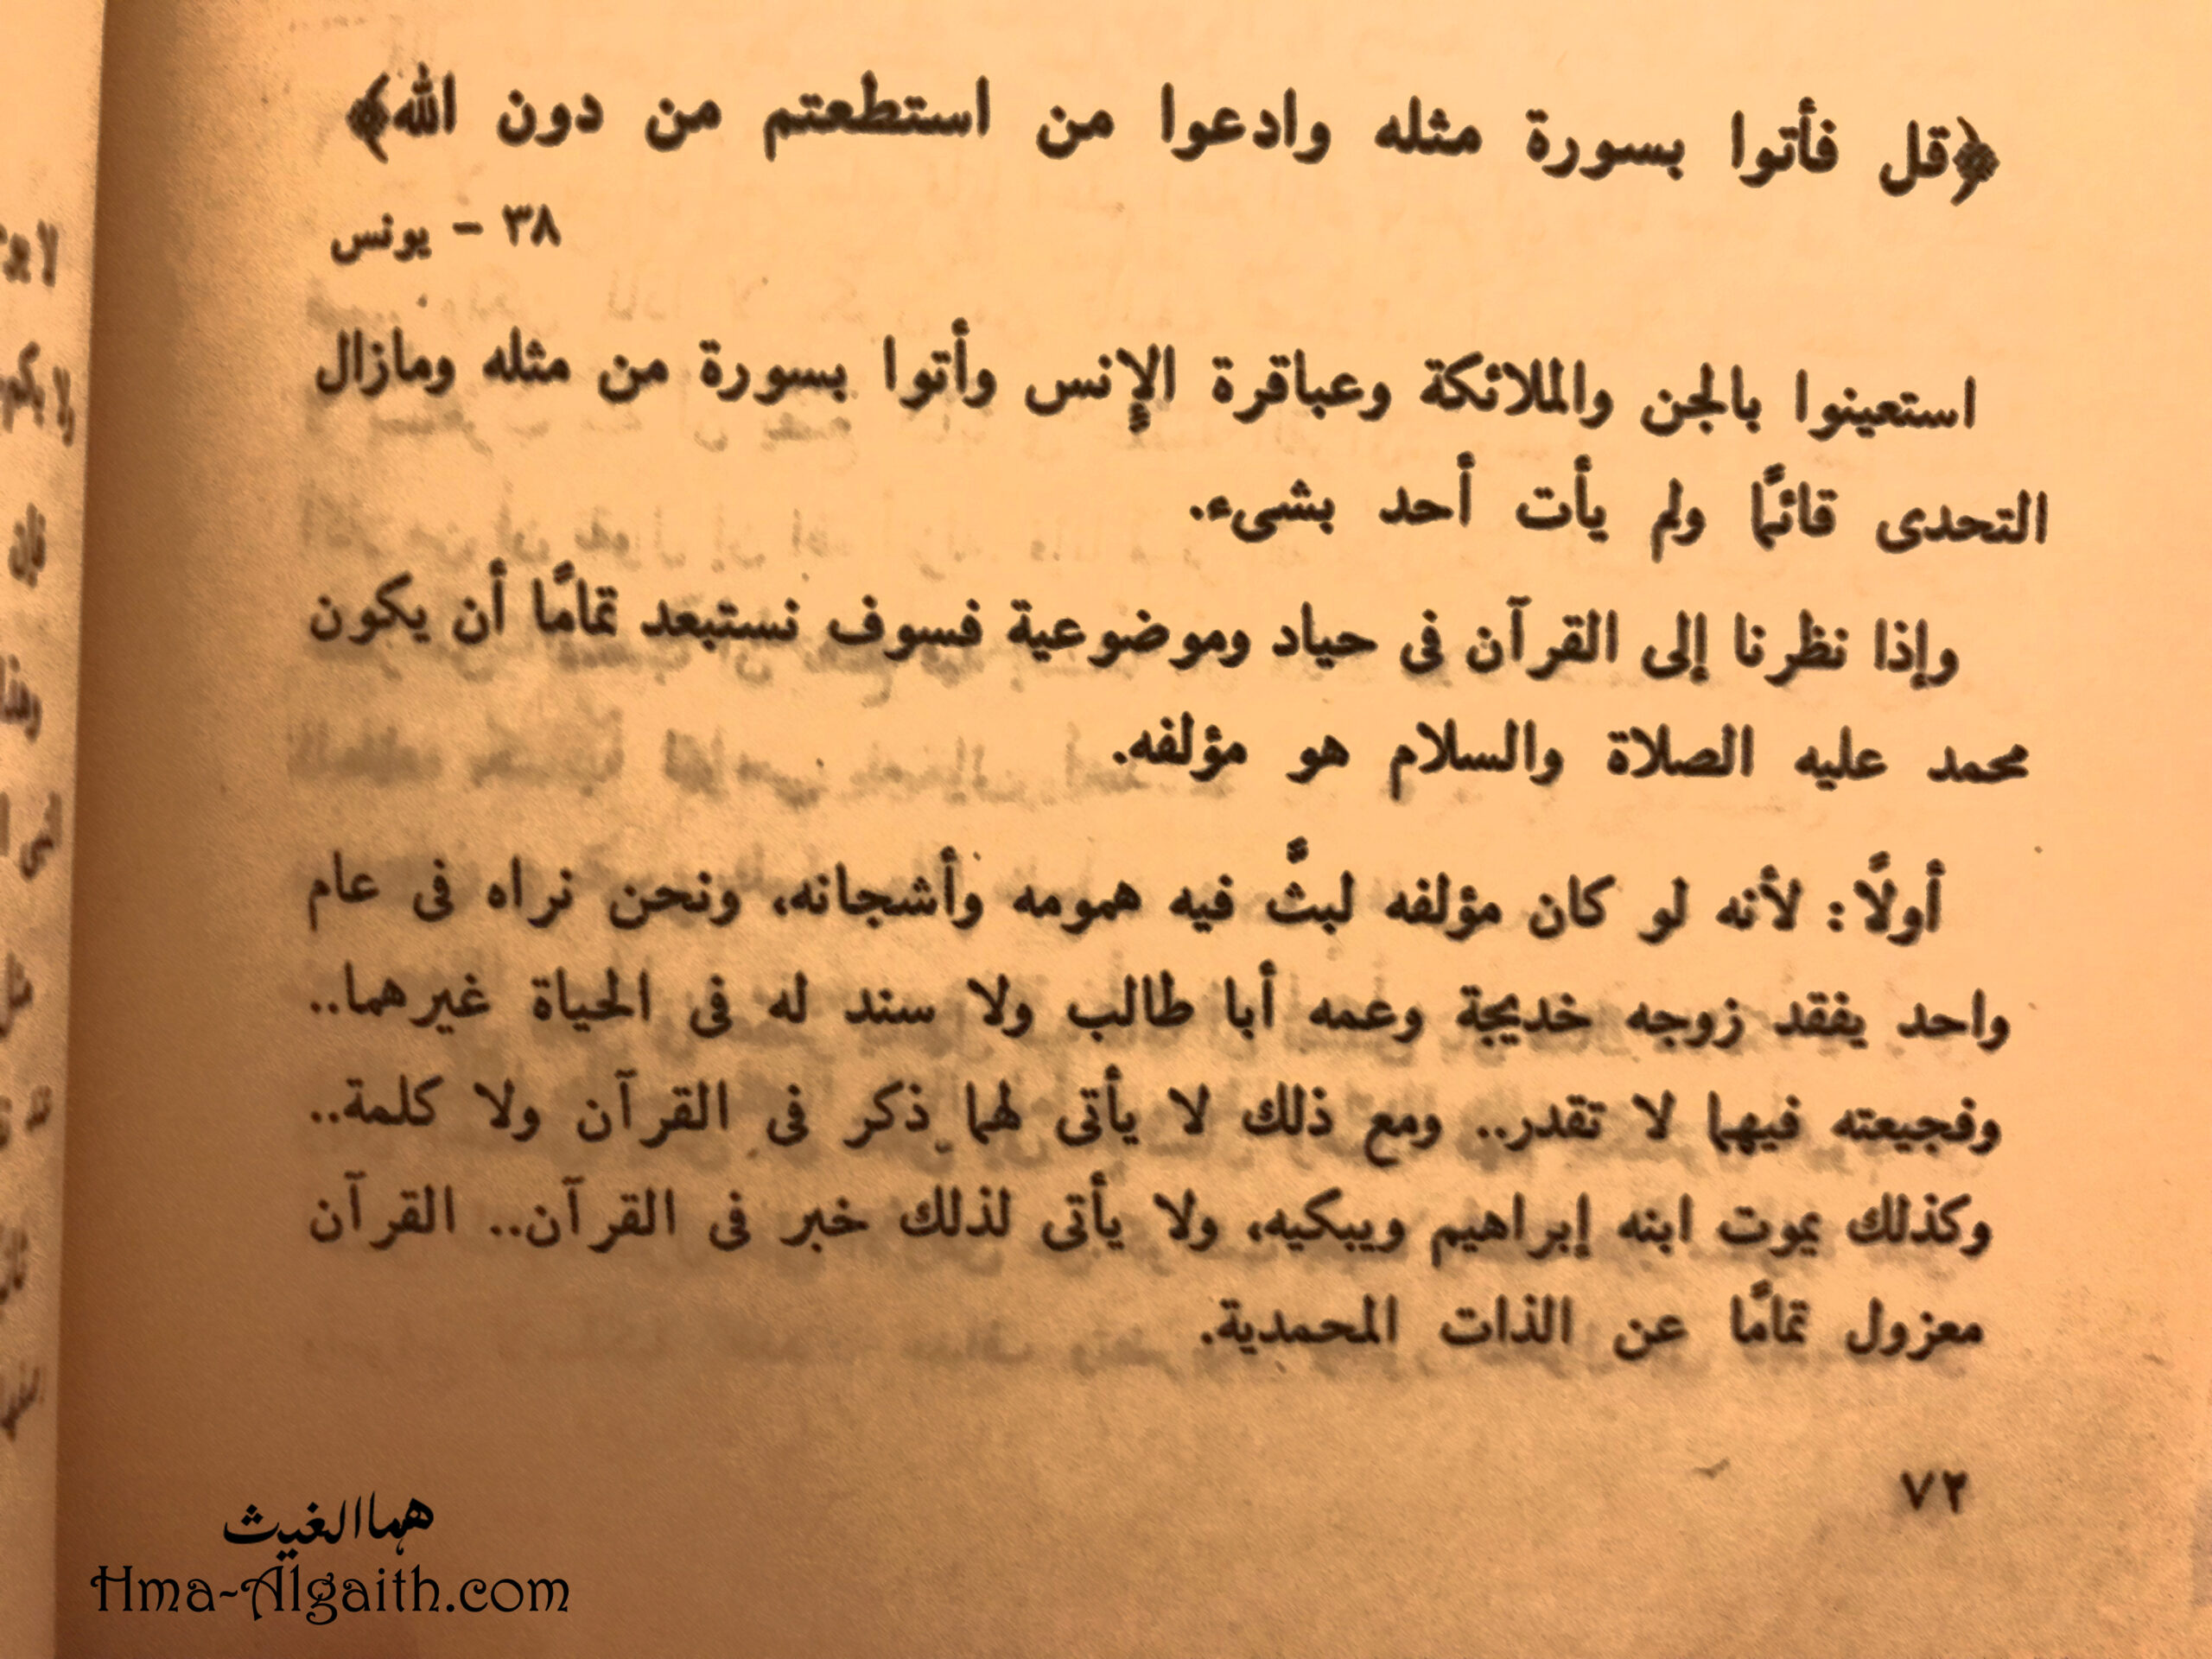 ﴿قل فأتوا بسورة مثله وادعوا من استطعتم من دون الله﴾
٣٨ - يونس
استعينوا بالجن والملائكة وعباقرة الإنس وأتوا بسورة من مثله ومازال
التحدى قائمًا ولم يأت أحد بشىء.
وإذا نظرنا إلى القرآن فى حياد وموضوعية فسوف نستبعد تمامًا أن يكون
محمد عليه الصلاة والسلام هو مؤلفه.
أولًا: لأنه لو كان مؤلفه لبثَّ فيه همومه وأشجانه، ونحن نراه فى عام
واحد يفقد زوجه خديجة وعمه أبا طالب ولا سند له فى الحياة غيرهما..
وفجيعته فيهما لا تقدر.. ومع ذلك لا يأتى لهما ذكر فى القرآن ولا كلمة..
وكذلك يموت ابنه إبراهيم ويبكيه، ولا يأتى لذلك خبر فى القرآن.. القرآن
معزول تمامًا عن الذات المحمدية.
٧٢
هما الغيث
Hma-Algaith.com